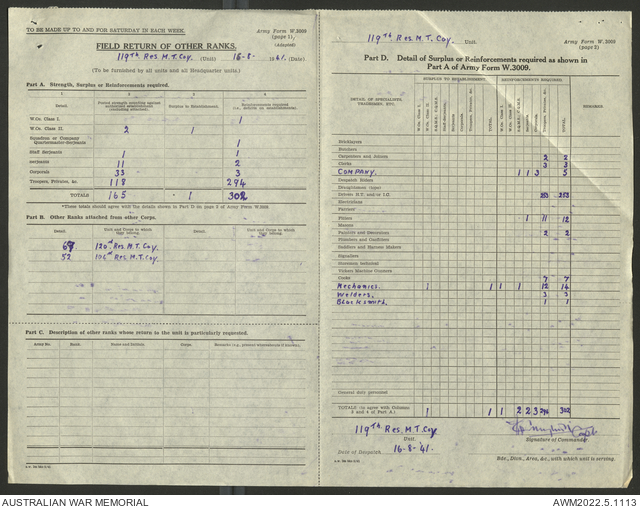 TO BE MADE UP TO AND FOR SATURDAY IN EACH WEEK.
Army Form W.3009
(page 1)
(Adapted)
FIELD RETURN OF OTHER RANKS.
119th Res. M.T. Coy. (Unit) 16-8- 1941. (Date)
(To be furnished by all units and all Headquarter units.)
Part A. Strength, Surplus or Reinforcements required.
1 2 3 4
Detail Surplus to Establishment.
W.Os. Class I. 1
W.Os. Class II. 2 1
Squadron or Company
Quartermaster-Serjeants 1
Staff Serjeants 1 1
Serjeants 11 2
Corporals 33 3
Troopers, Privates, &c. 118 294
TOTALS 165 1 302
*These totals should agree with the details shown in Part D on page 2 of Army Form W.3009.
Part B. Other Ranks attached from other Corps.
Detail. Unit and Corps to which they belong. Detail. Unit and Corps to which they belong.
120th Res. M.T. Coy.
52 106th Res. M.T. Coy.
Part C. Description of other ranks whose return to the unit is particularly requested.
Army No. Rank. Name and Initials. Corps. Remarks (e.g., present whereabouts if known).
119th Res. M.T. Coy. Unit
Army Form W.3009
(page 2)
Part D. Detail of Surplus or Reinforcements required as shown in
Part A of Army Form W.3009.
SURPLUS TO ESTABLISHMENT. REINFORCEMENTS REQUIRED.
DETAIL OF SPECIALISTS, TRADESMEN, ETC.
W.Os. Class I. W.Os. Class II. Staff-Serjeants. Serjeants. Corporals. Troopers, Privates, &c. TOTAL. REMARKS
Bricklayers
Butchers
Carpenters and Joiners 2 2
Clerks 3 3
COMPANY. 1 1 3 5
Despatch Riders
Draughtsmen (topo)
Drivers H.T. and/or I.C. 253 253
Electricians
Farriers
Fitters 1 11 12
Masons
Painters and Decorators 2 2
Plumbers and Gasfitters
Saddlers and Harness Makers
Signallers
Storemen technical
Vickers Machine Gunners
Cooks 7 7
Mechanics. 1 1 1 1 12 14
Welders. 3 3
Blacksmith. 1 1
General duty personnel
TOTALS (to agree with Columns
3 and 4 of Part A.) 1 1 1 2 2 3 294 302
119th Res. M.T. Coy.
Unit.
Signature of Commander
Date of Despatch 16-8-41.
Bde., Divn., Area, &c., with which unit is serving.
AUSTRALIAN WAR MEMORIAL
AWM2022.5.1113